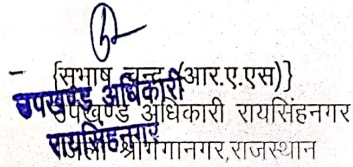 {सुभाष चन्द्र (आर.ए.एस)}
उपखण्ड अधिकारी
उपखण्ड अधिकारी रायसिंहनगर
रायसिंहनगर
श्रीगंगानगर,राजस्थान